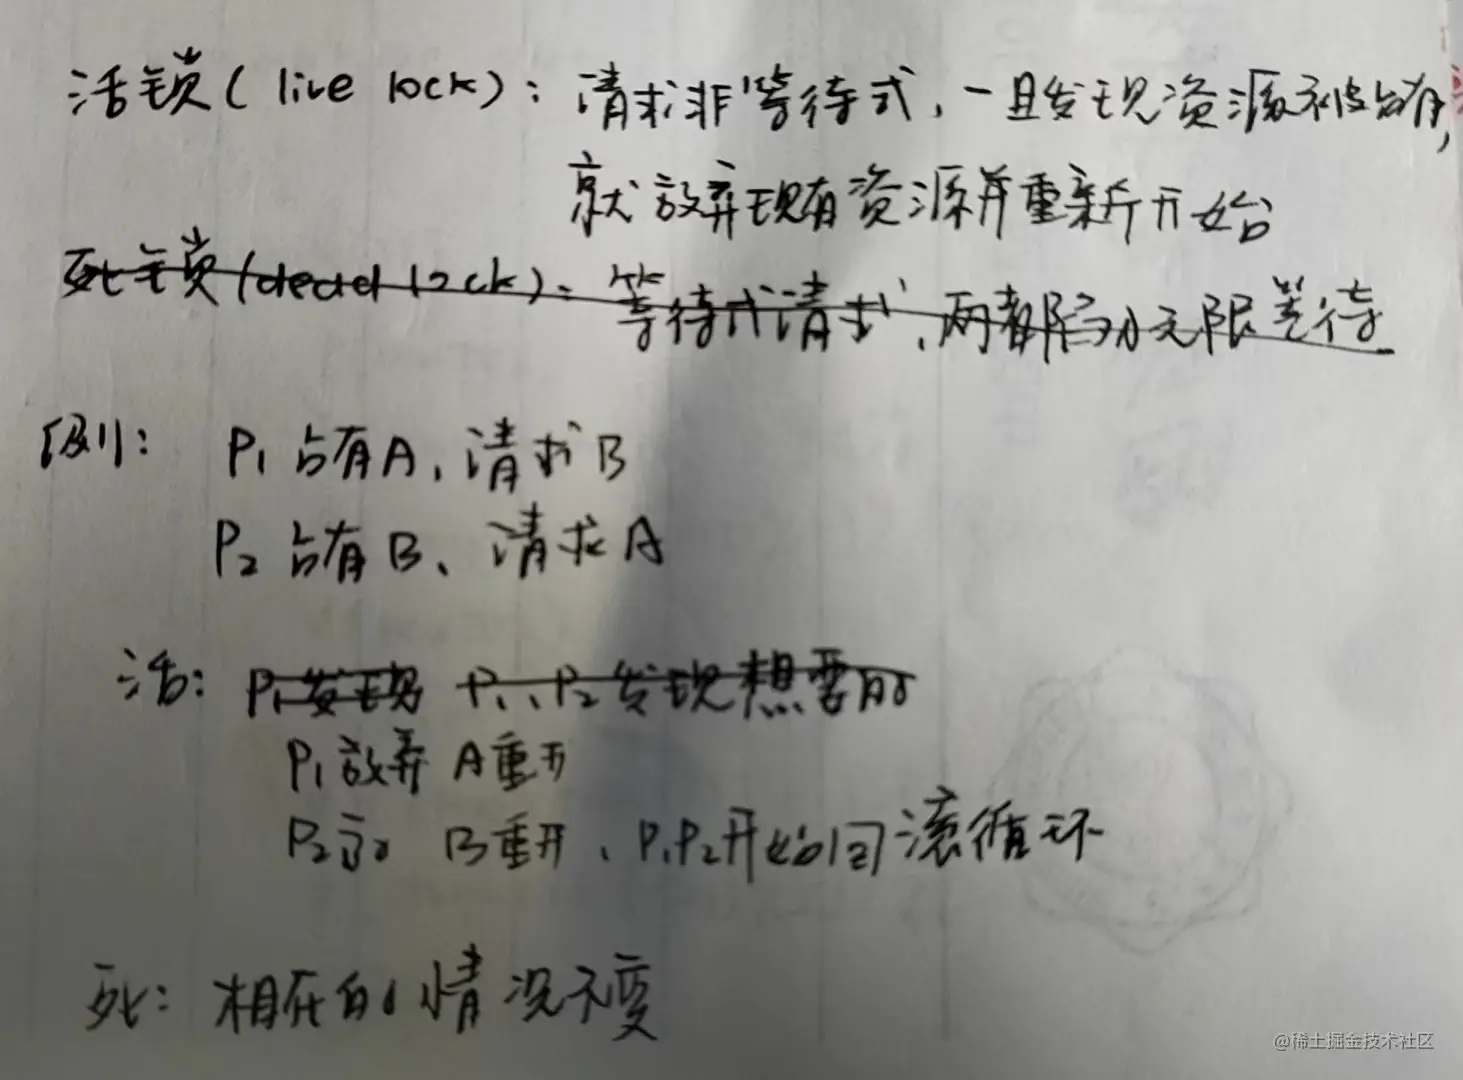 活锁(live lock):请求非等待式,一旦发现资源被占有,
就放弃现有资源并重新开始
死锁(dead lock):等待式请求,两者都陷入无限等待
例:P₁占有A、请求B
P₂占有B、请求A
活:P₁发现 P₁、P₂发现想要的
P₁放弃 A重开
P₂ B重开、P₁P₂开始回滚循环
死:相互的情况不变
@稀土掘金技术社区